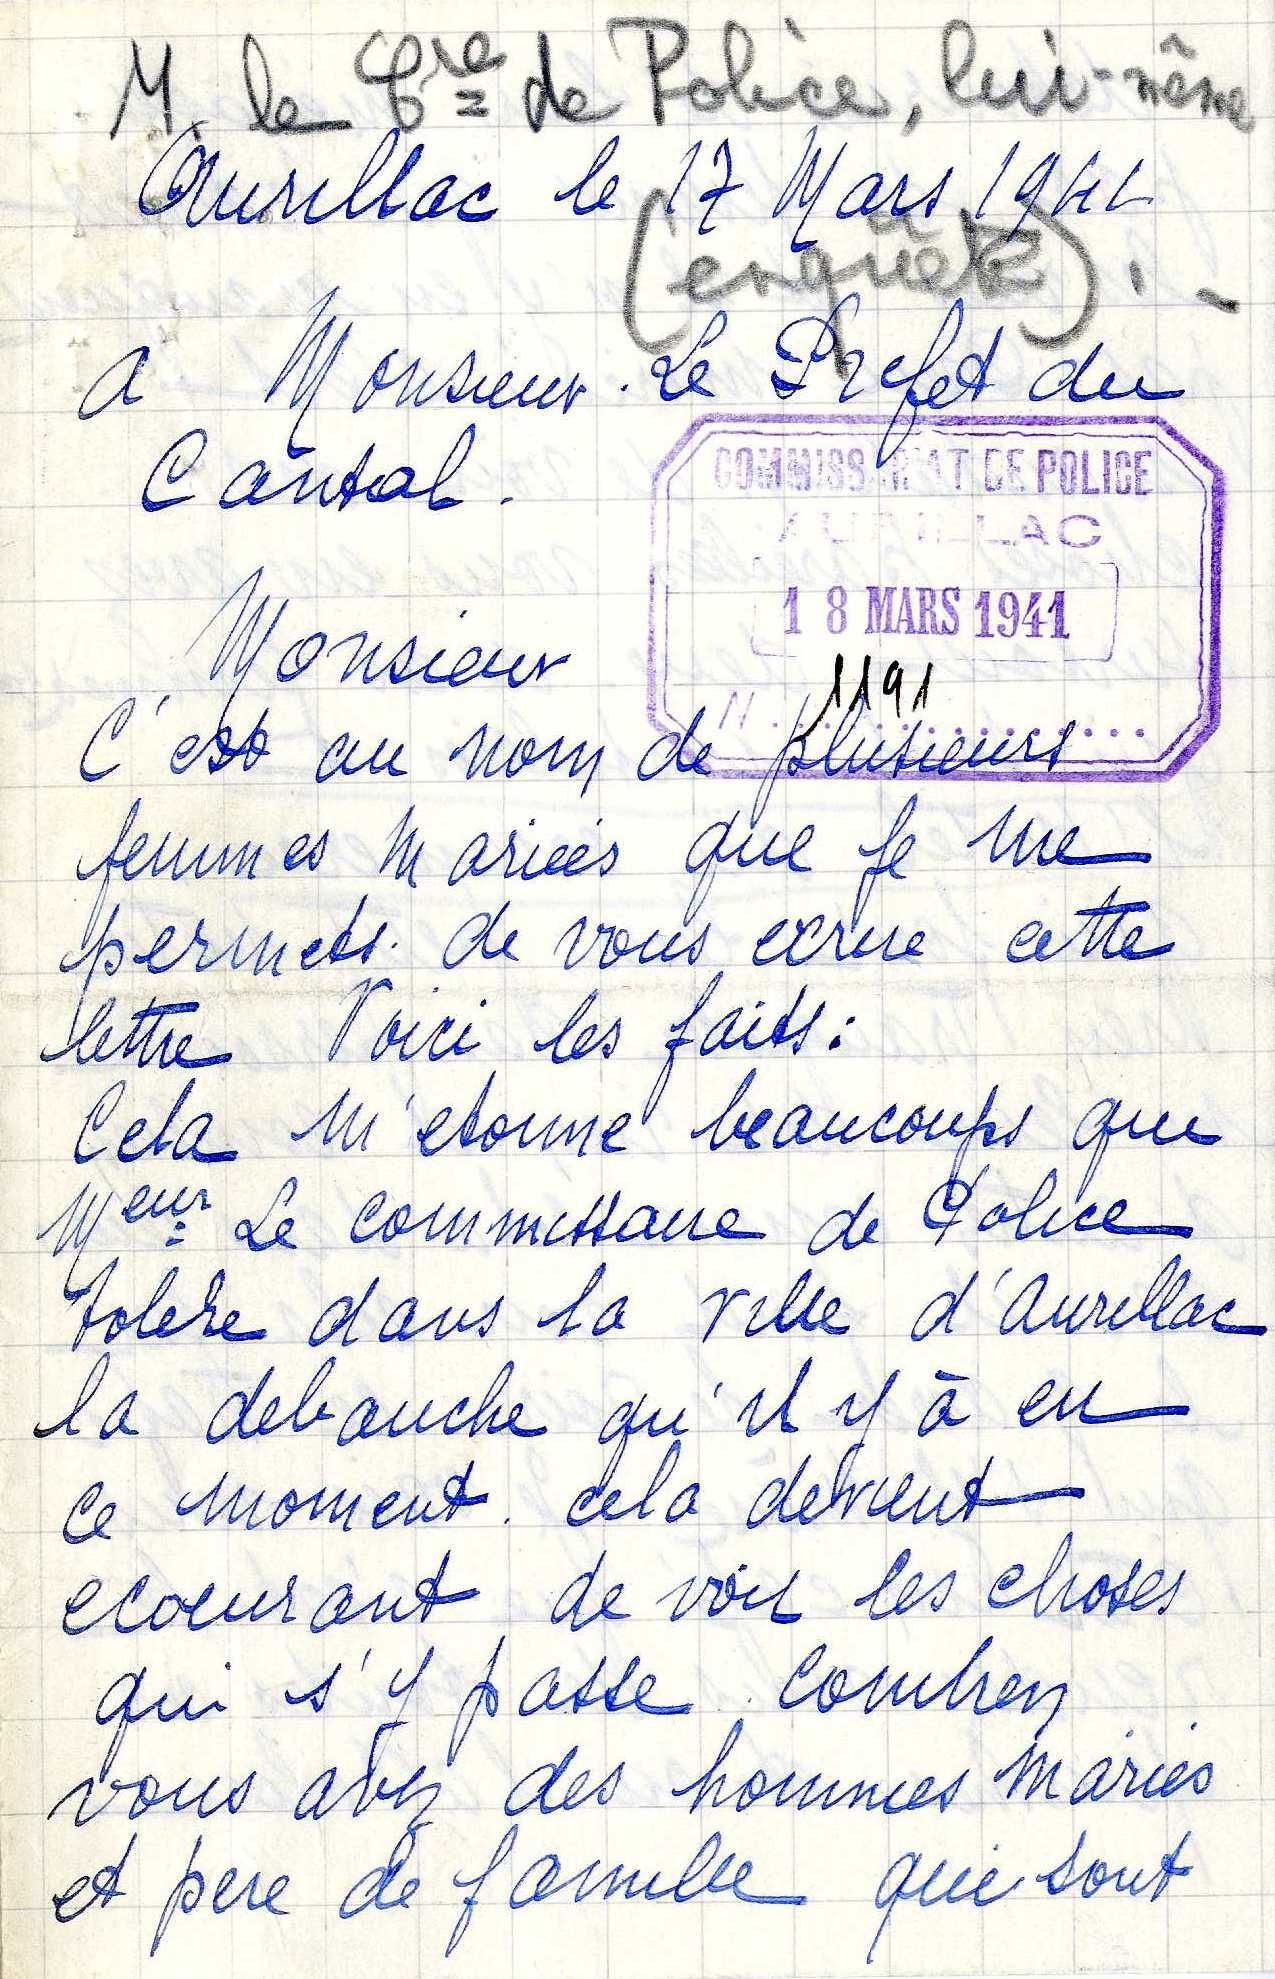 M. le C^re de Police, lui-même
Aurillac le 17 Mars 1941
(enquête). -
a Monsieur. Le Prefet du
Cantal.
COMMISSARIAT DE POLICE
AURILLAC
18 MARS 1941
N. 1191
Monsieur
C'est au nom de plusieurs
femmes mariées que je me
permets. de vous ecrire cette
lettre Voici les faits:
Cela m'etonne beaucoups que
M^eur Le commissaire de Police
tolere dans la ville d'Aurillac
la debauche qu'il y à en
ce moment. cela devient
ecoeurant de voir les choses
qui s'y passe. combien
vous avez des hommes mariés
et pere de famille qui sont